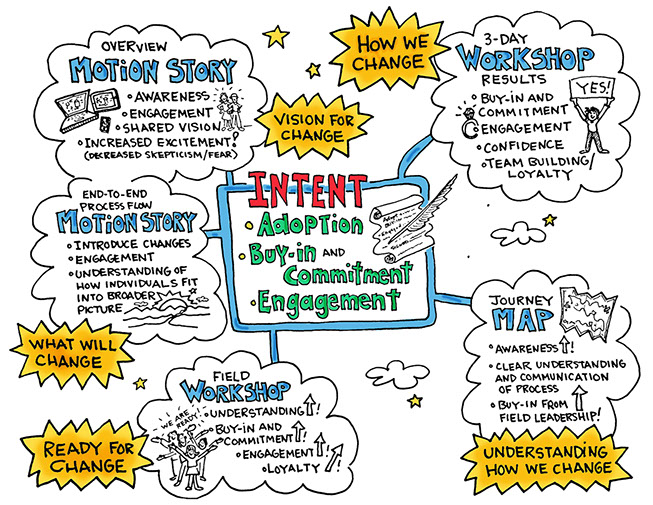 OVERVIEW
MOTION STORY
• AWARENESS
• ENGAGEMENT
• SHARED VISION
• INCREASED EXCITEMENT!
(DECREASED SKEPTICISM/FEAR)
VISION FOR
CHANGE
HOW WE
CHANGE
3-DAY
WORKSHOP
RESULTS
• BUY-IN AND
COMMITMENT
• ENGAGEMENT
• CONFIDENCE
• TEAM BUILDING/
LOYALTY
YES!
END-TO-END
PROCESS FLOW
MOTION STORY
• INTRODUCE CHANGES
• ENGAGEMENT
• UNDERSTANDING OF
HOW INDIVIDUALS FIT
INTO BROADER
PICTURE
WHAT WILL
CHANGE
INTENT
• Adoption
• Buy-in AND
Commitment
• Engagement
JOURNEY
MAP
• AWARENESS ↑!
• CLEAR UNDERSTANDING
AND COMMUNICATION
OF PROCESS
• BUY-IN FROM ↑
FIELD LEADERSHIP!
UNDERSTANDING
HOW WE CHANGE
FIELD
WORKSHOP
WE ARE
READY!
• UNDERSTANDING ↑!
• BUY-IN AND
COMMITMENT ↑!
• ENGAGEMENT ↑!
• LOYALTY ↑!
READY FOR
CHANGE